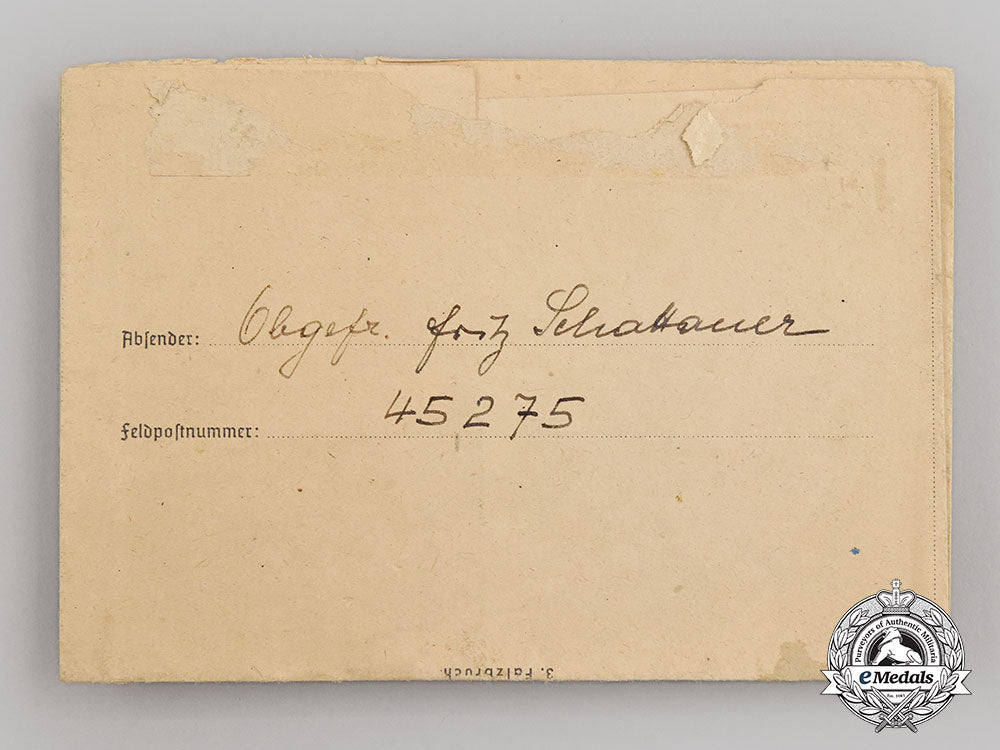 Absender: Obgefr. Fritz Schattauer
Feldpostnummer: 45275
3. Falzbruch
Purveyors of Authentic Militaria
eMedals